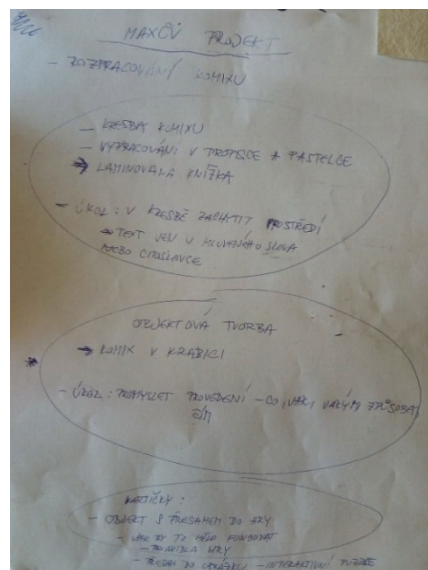 MAXŮV PROJEKT
- ROZPRACOVÁNÍ KOMIXU
- KRESBA KOMIXU
- VYPRACOVÁNÍ V PROPISCE A PASTELCE
→ LAMINOVANÁ KNÍŽKA
- ÚKOL: V KRESBĚ ZACHYTIT PROSTŘEDÍ
→ TEXT JEN U MLUVENÉHO SLOVA
NEBO CITOSLOVCE
OBJEKTOVÁ TVORBA
→ KOMIX V KRABICI
- ÚKOL: PROMYSLET PROVEDENÍ - CO, JAK, JAKÝM ZPŮSOBEM
KARTIČKY:
- OBJEKT S PŘESAHEM DO HRY
- JAK BY TO MĚLO FUNGOVAT
- PRAVIDLA HRY
- DO OBRÁZKU - INTERAKTIVNÍ PUZZLE